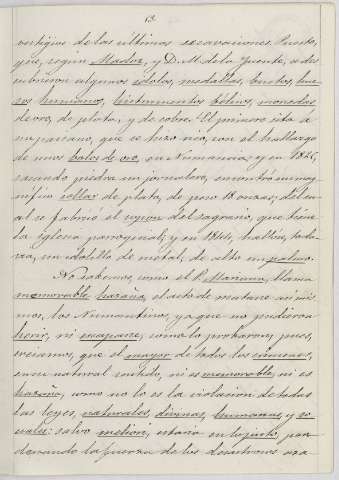 13.
vestigios de las últimas escavaciones. Puesto,
que, según Madoz, y D. M. de la Fuente, se des-
cubrieron algunos ídolos, medallas, bustos, hue-
sos humanos, instrumentos bélicos, monedas
de oro, de plata, y de cobre. El primero cita a
un paisano, que se hizo rico, con el hallazgo
de unas bolas de oro, en Numancia; y en 1825,
sacando piedra un jornalero, encontró un mag-
nífico collar de plata, de peso 18 onzas; del cu-
al se fabricó el copon del sagrario, que tiene
la iglesia parroquial; y en 1844, hallóse, toda-
vía, un idolillo de metal, de alto un palmo.
No sabemos, como el P. Mariana, llama
memorable hazaña, el acto de matarse a sí mis-
mos, los Numantinos, ya que no pudieron
herir, ni escaparse, como lo probaron; pues,
creemos, que el mayor de todos los crímenes,
en su natural sentido, ni es memorable, ni es
hazaña, como no lo es la violacion de todas
las leyes, naturales, divinas, humanas, y so-
ciales: salvo meliori, estaria en lo justo, pon-
derando la fuerza de los desastrosos asa-